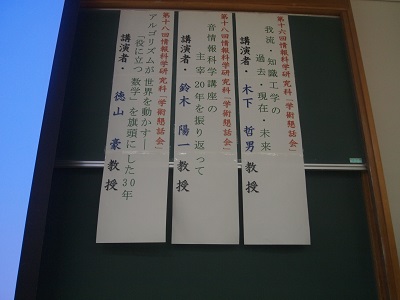 第十六回情報科学研究科「学術懇話会」
我流・知識工学の
過去・現在・未来
講演者・木下 哲男 教授
第十八回情報科学研究科「学術懇話会」
音情報科学講座の
主宰20年を振り返って
講演者・鈴木 陽一 教授
第十八回情報科学研究科「学術懇話会」
アルゴリズムが世界を動かす―
「役に立つ数学」を旗頭にした30年
講演者・徳山 豪 教授